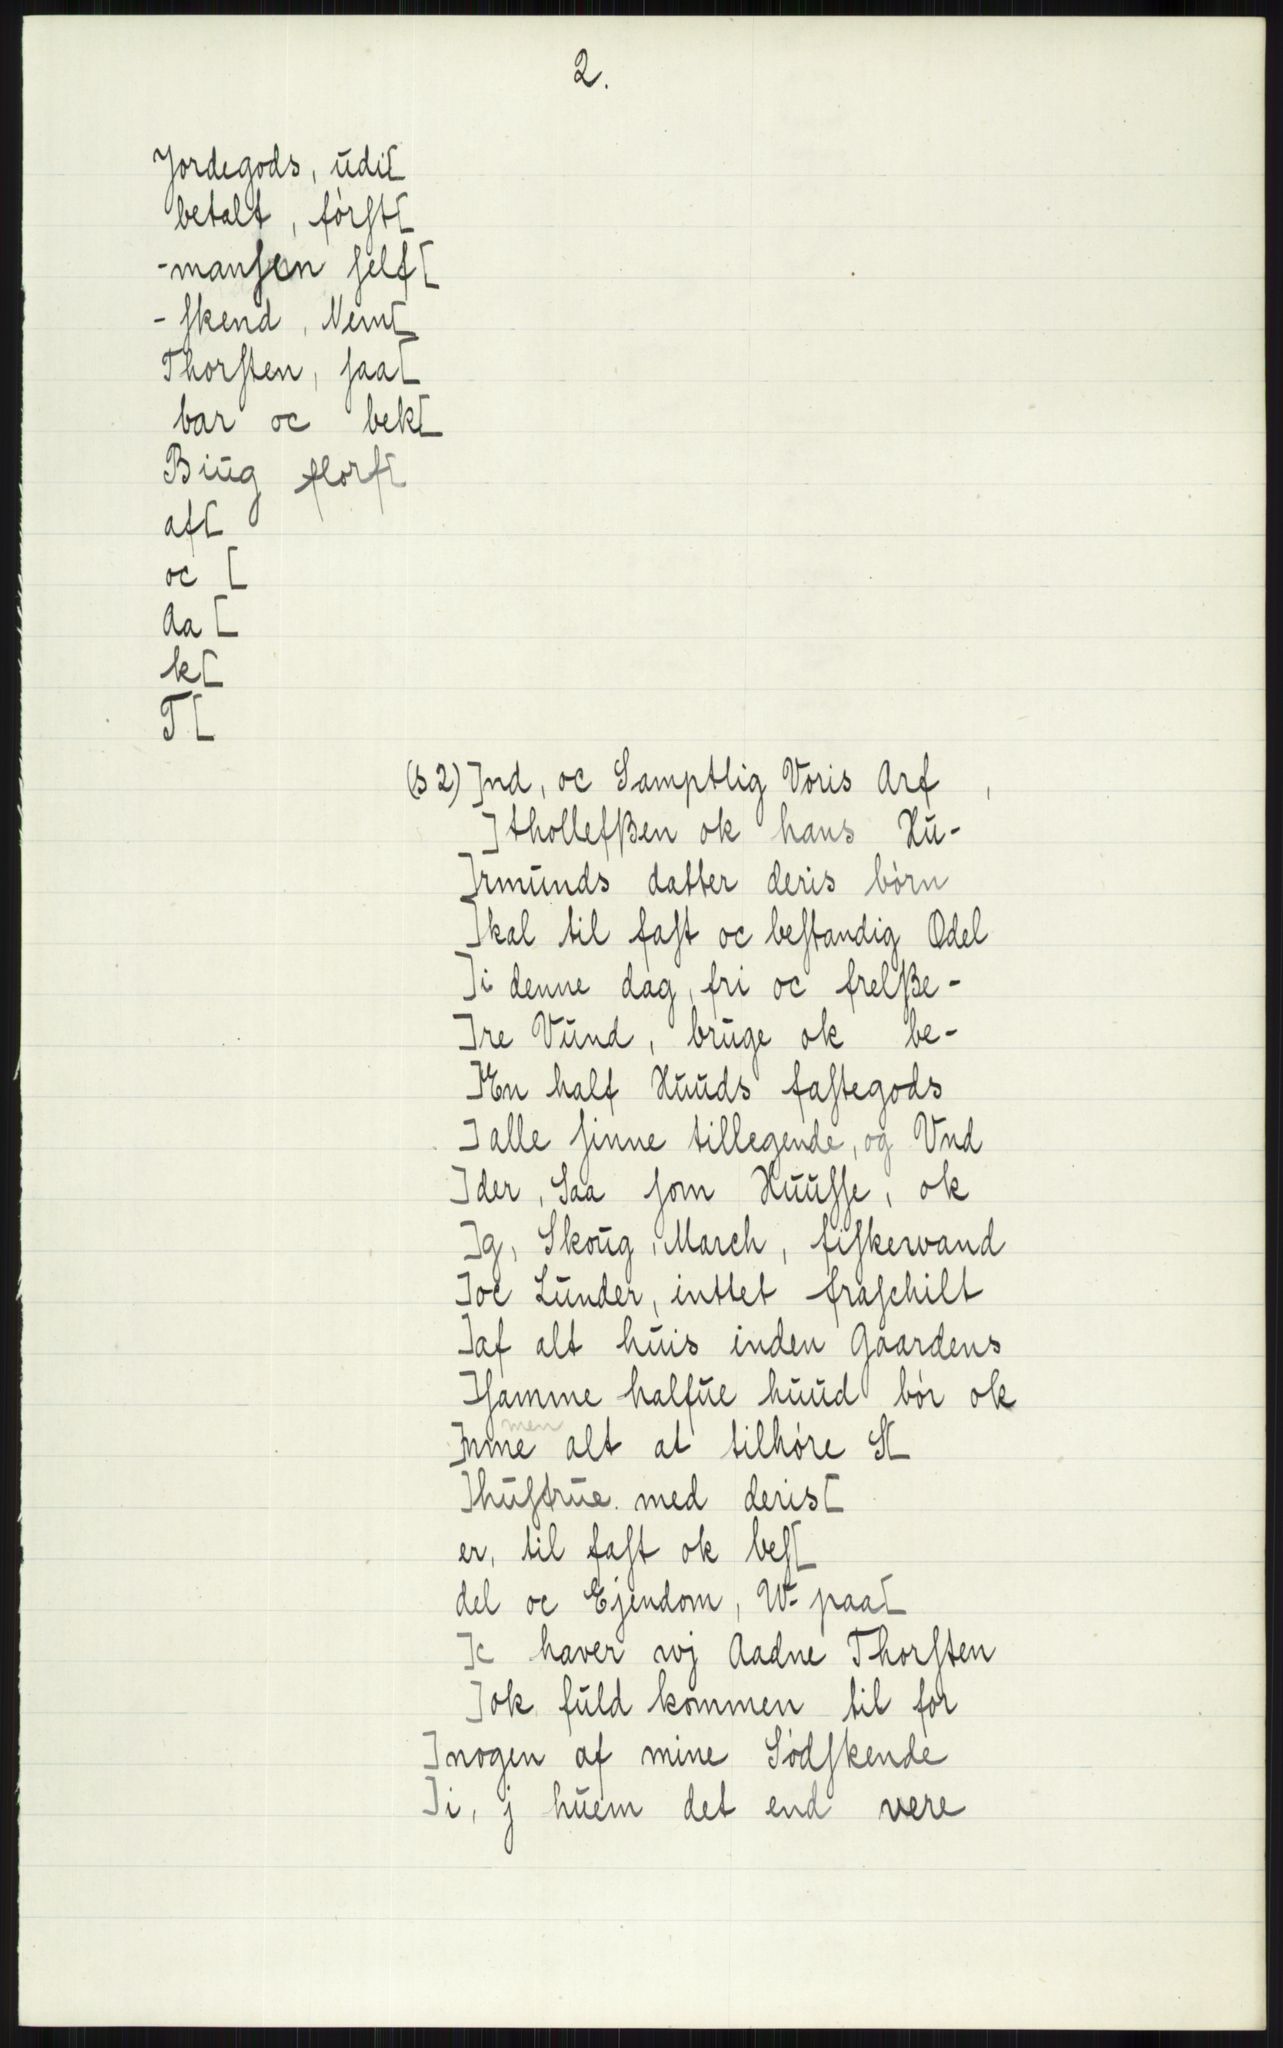 2.
Jordegods, ūdi[
betalt, førſt[
-manſen ſelf[
- ſkend, Nem[
Thorſten, ſaa[
bar oc bek[
Biūg florſ[
af[
oc [
Aa [
k[
T[
(s 2) ]nd, oc Samptlig Voris Arf ,
] thollefßen ok hans Hū-
]rmūnds datter deris børn
]kal til faſt oc beſtandig Odel
]i denne dag, fri oc frelße-
]re Vūnd, brūge ok be-
]En half Hūūds faſtegods
] alle ſinne tillegende, og Vnd
]der, Saa ſom Hūūſſe, ok
]g, Skoūg, March, fiſkervand
]oc Lūnder, inttet fraſchilt
]af alt hūis inden Gaardens
]ſamme halfūe hūūd bør ok
men
]nme alt at tilhøre S[
]hūſtrūe. med deris[
er, til faſt ok beſ[
del oc Ejendom, W- paa[
]c haver wj Aadne Thorſten
] ok fūld kommen til for
]nogen af mine Södſkende
]i, j hūem det end vere